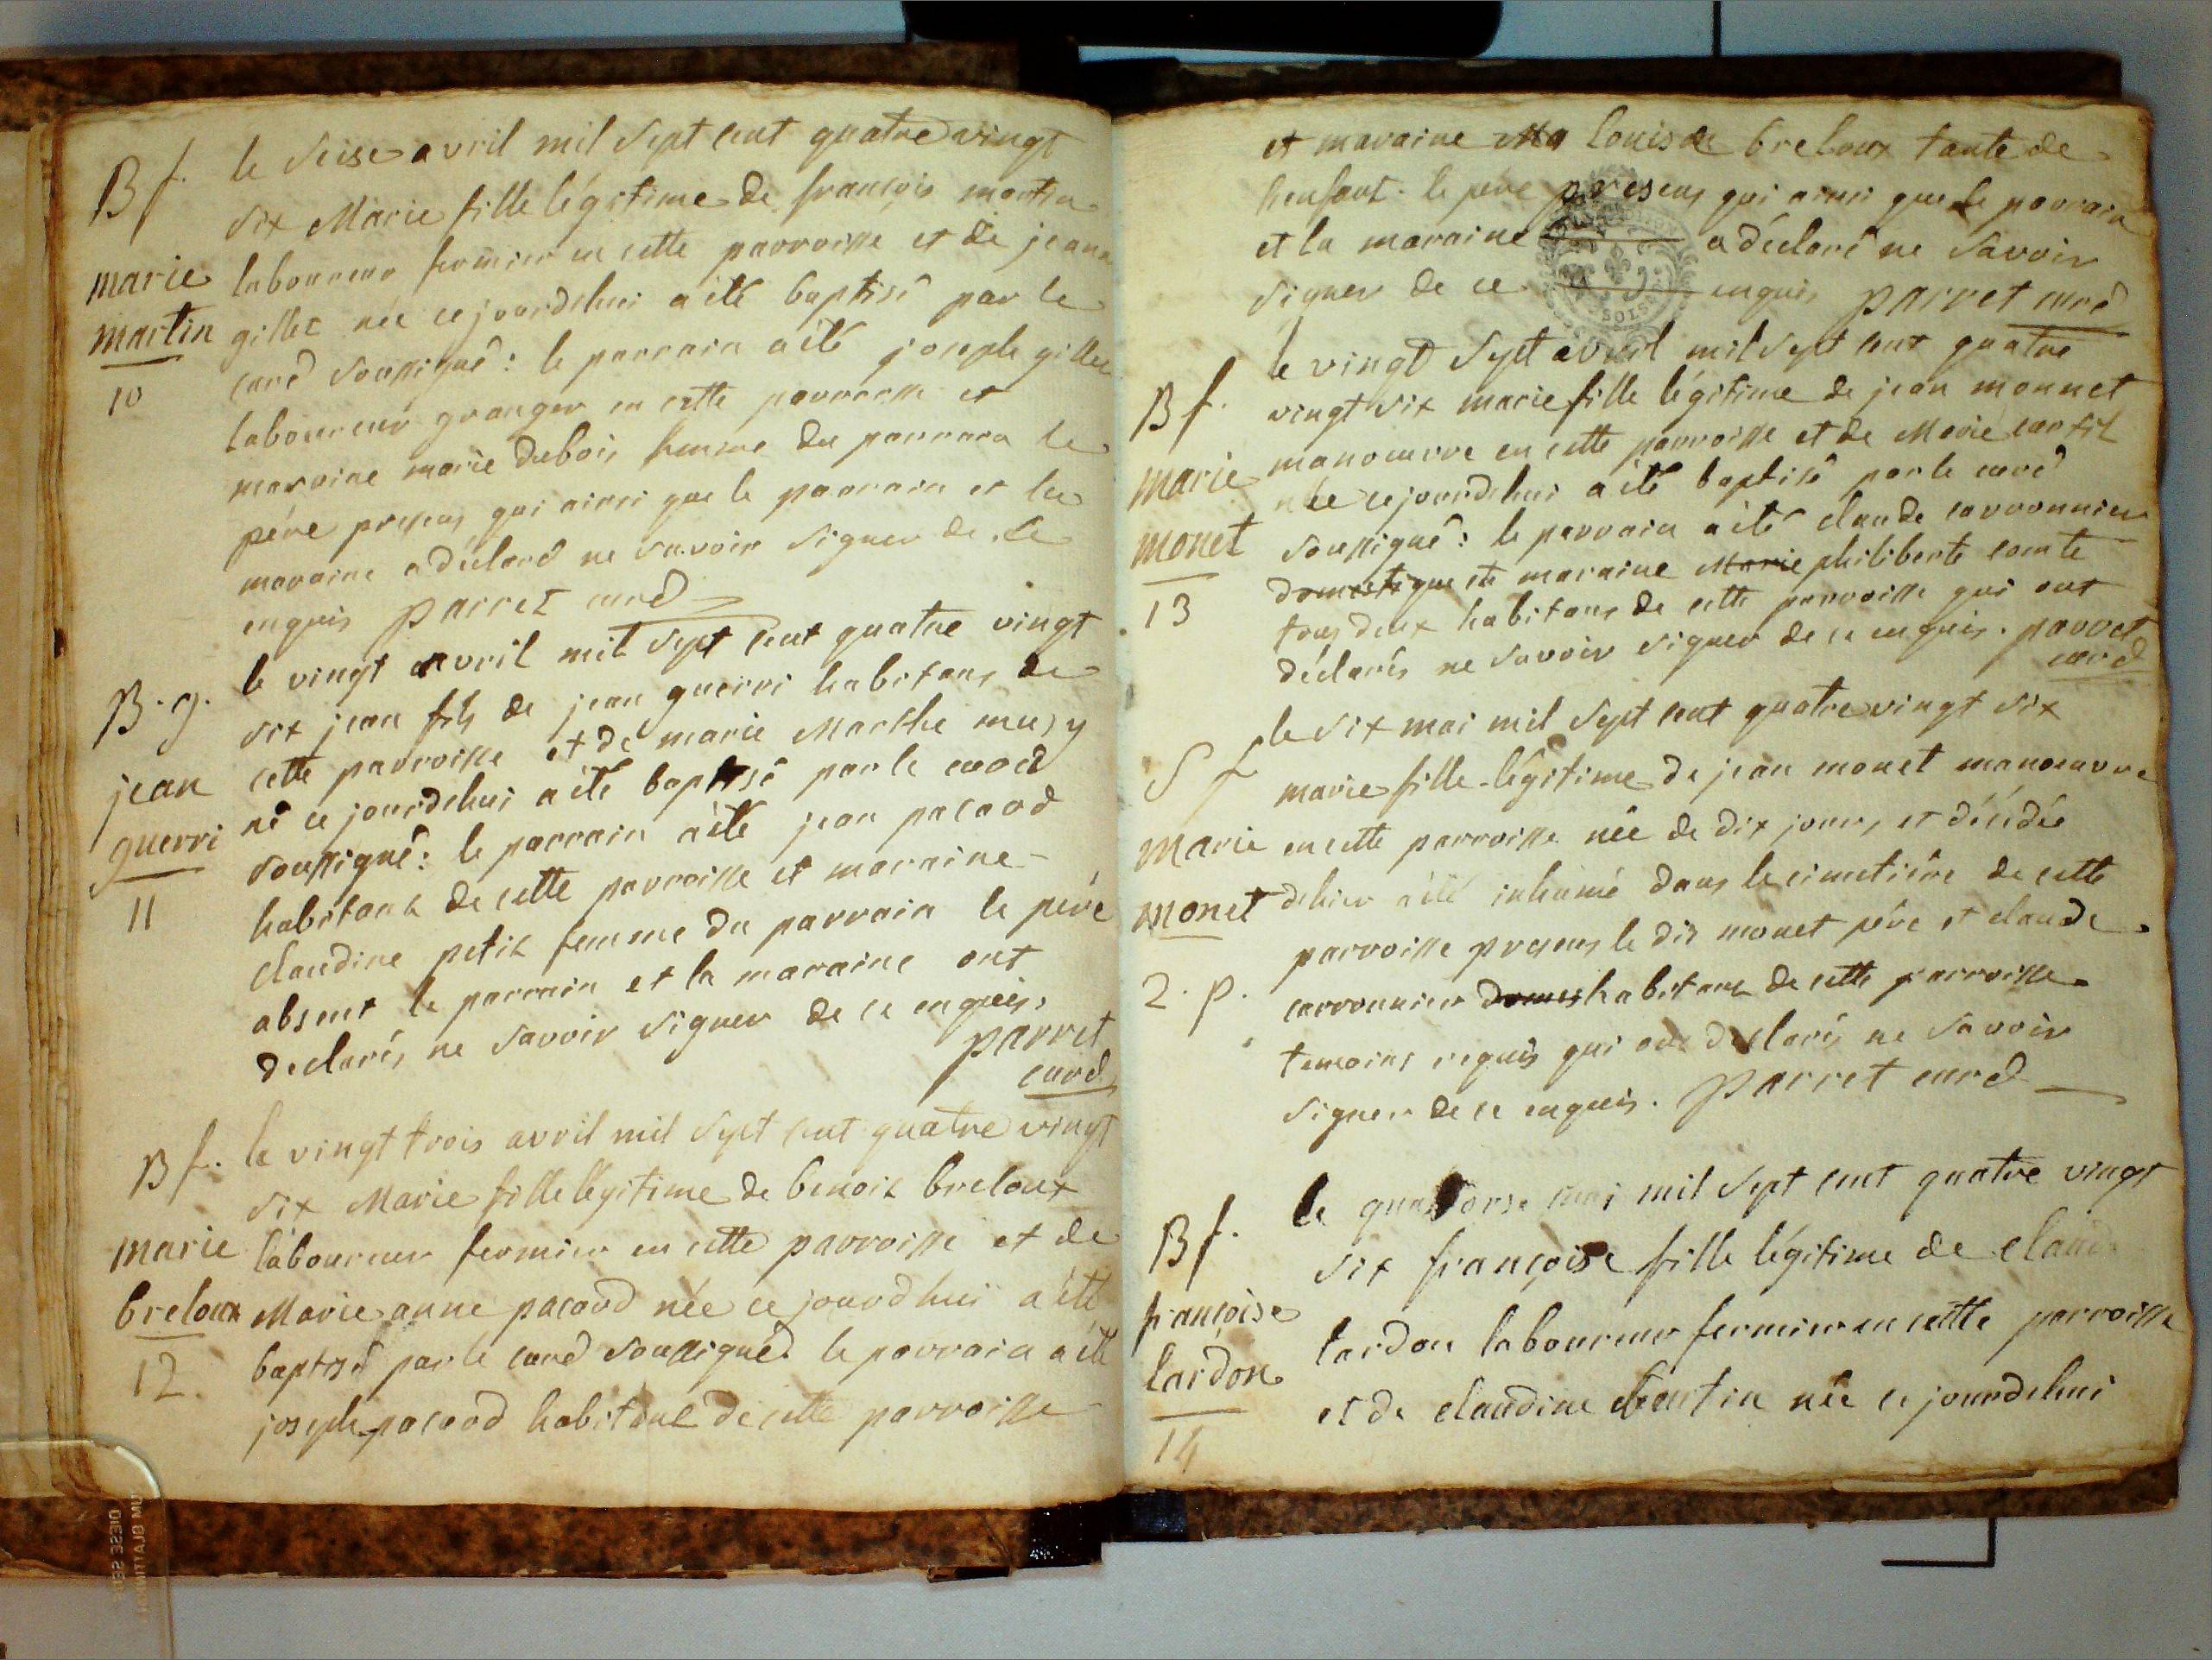 B f.
marie
martin
10
le seise avril mil sept cent quatre vingt
six Marie fille légitime de françois martin
laboureur fermier en cette parroisse et de jeane
gillet née ce jourdehui a été baptisé par le
curé soussigné : le parrain a été joseph gillet
laboureur granger en cette parroisse et
maraine marie dubois femme du parrain le
pére presens qui ainsi que le parrain et la
maraine a déclaré ne savoir signer de ce
enquis parret curé
B. g.
jean
guerri
11
le vingt avril mil sept cent quatre vingt
six jean fils de jean guerri habitans de
cette parroisse et de marie Marthe musy
né ce jourdehui a été baptisé par le curé
soussigné : le parrain a été jean pacard
habitant de cette parroisse et maraine
claudine petit femme du parrain le pére
absent le parrain et la maraine ont
declarés ne savoir signer de ce enquis.
parret
curé
B f.
marie
breloux
12.
le vingt trois avril mil sept cent quatre vingt
six Marie fille légitime de benoit breloux
laboureur fermier en cette parroisse et de
Marie anne pacard née ce jourdhui a été
baptisé par le curé soussigné le parrain a été
joseph pacard habitant de cette parroisse
et maraine louise breloux tante de
lenfant. le pére presens qui ainsi que le parrain
et la maraine a déclaré ne savoir
signer de ce enquis parret curé
B f.
marie
monet
13
le vingt sept avril mil sept cent quatre
vingt six marie fille légitime de jean monnet
manoeuvre en cette parroisse et de Marie
née ce jourdehui a été baptisé par le curé
soussigné : le parrain a été claude carronnier
domestique et maraine Marie philiberte comte
tous deux habitans de cette parroisse qui ont
déclarés ne savoir signer de ce enquis. parret
curé
S f
marie
monet
2. p.
le six mai mil sept cent quatre vingt six
marie fille légitime de jean monet manoeuvre
en cette parroisse née de dix jours et décédée
dehier a été inhumé dans le cimetière de cette
parroisse presens le dit monet pére et claude
carronnier domes habitant de cette parroisse
temoins requis qui ont declarés ne savoir
signer de ce enquis. parret curé
B f.
françoise
lardon
14
le quatorse mai mil sept cent quatre vingt
six françoise fille légitime de claude
lardon laboureur fermier en cette parroisse
et de claudine née ce jourdehui